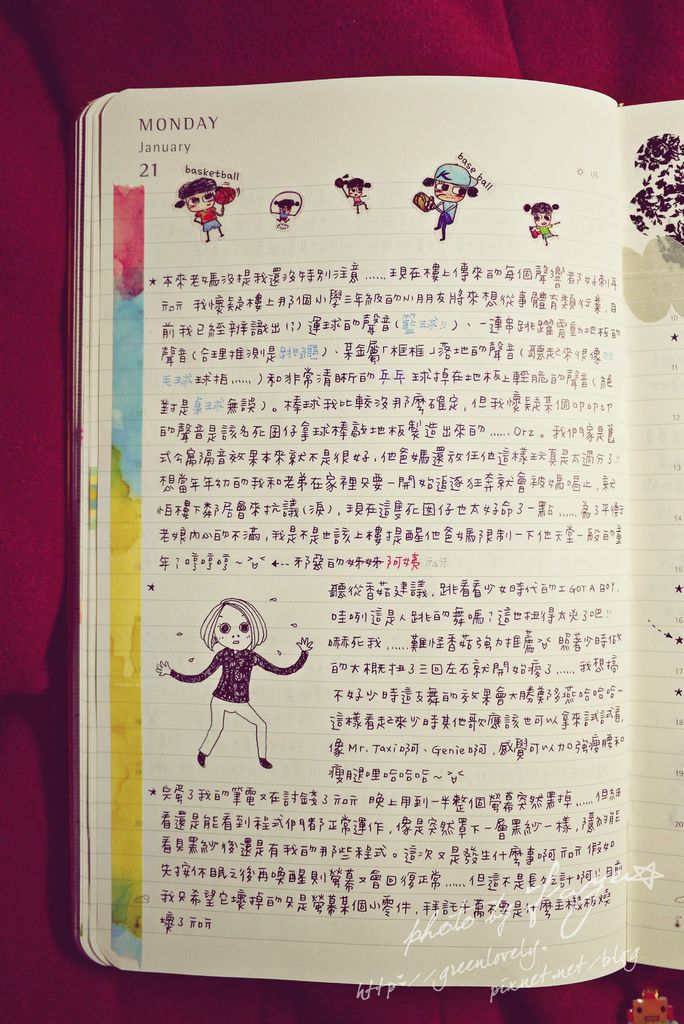 MONDAY
January
21
basketball
base ball
US
★本來老媽沒提我還沒特別注意……現在樓上傳來的每個聲響都好刺耳
我懷疑樓上那個小學三年級的小朋友將來想從事體育類行業,目
前我已經辨識出(!)運球的聲音(籃球!!)、一連串跳躍震動地板的
聲音(合理推測是跳繩)、某金屬「框框」落地的聲音(聽起來很像
毛球球拍……)和非常清晰的乒乓球掉在地板上輕脆的聲音(絕
對是桌球無誤)。棒球我比較沒那麼確定,但我懷疑某個叩叩叩
的聲音是該名死囝仔拿球棒敲地板製造出來的……Orz。我們家是舊
式公寓隔音效果本來就不是很好,他爸媽還放任他這樣玩真是太過分了!!
想當年年幼的我和老弟在家裡只要一開始追逐狂奔就會被媽喝止,就
怕樓下鄰居會來抗議(淚),現在這隻死囝仔也太好命了一點……為了平衡
老娘內心的不滿,我是不是也該上樓提醒他爸媽限制一下他天堂一般的童
年?哼哼哼~ ←--邪惡的姊姊阿姨
★
聽從香菇建議,跳看看少女時代的I GOT A BOY,
哇咧這是人跳的舞嗎?這也扭得太兇了吧!!
嚇死我……難怪香菇強力推薦 照著少時做
的大概扭了三回左右就開始痠了……我想搞
不好少時這支舞的效果會大勝鄭多燕哈哈哈~
這樣看起來少時其他歌應該也可以拿來試試看,
像Mr.Taxi啊、Genie啊,感覺可以加強瘦腰和
瘦腿哩哈哈哈~
★完蛋了我的筆電又在討錢了 晚上用到一半整個螢幕突然黑掉……但細
看還是能看到程式們都正常運作,像是突然罩下一層黑紗一樣,隱約能
看見黑紗後還是有我的那些程式。這次又是發生什麼事啊 假如
先按休眠之後再喚醒則螢幕又會回復正常……但這不是長久之計啊!!目前
我只希望它壞掉的只是螢幕某個小零件,拜託千萬不要是什麼主機板燒
壞了
10
11
12
13
14
15
16
17
18
19
20
21
photo by
http://greenlovely.
pixnet.net/blog